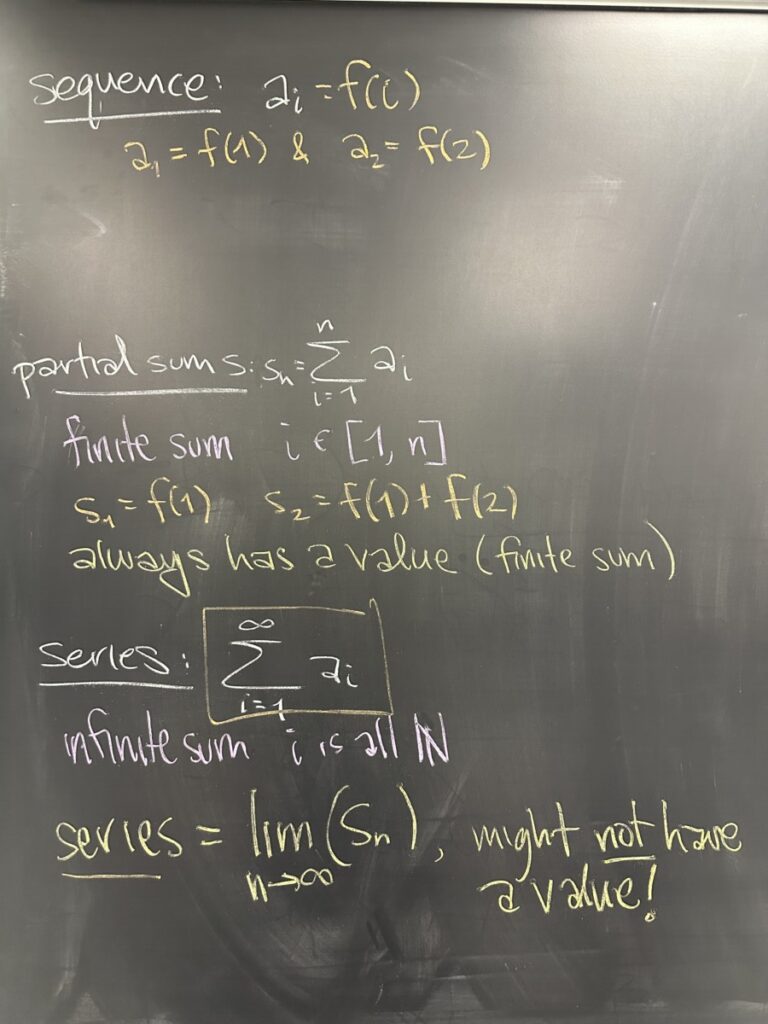 sequence: aᵢ = f(i)
a₁ = f(1) & a₂ = f(2)
partial sums: sₙ = ∑ⁿᵢ₌₁ aᵢ
finite sum i ∈ [1, n]
s₁ = f(1) s₂ = f(1) + f(2)
always has a value (finite sum)
series: ∑^∞ᵢ₌₁ aᵢ
infinite sum i is all ℕ
series = lim n→∞ (Sₙ), might not have
a value!